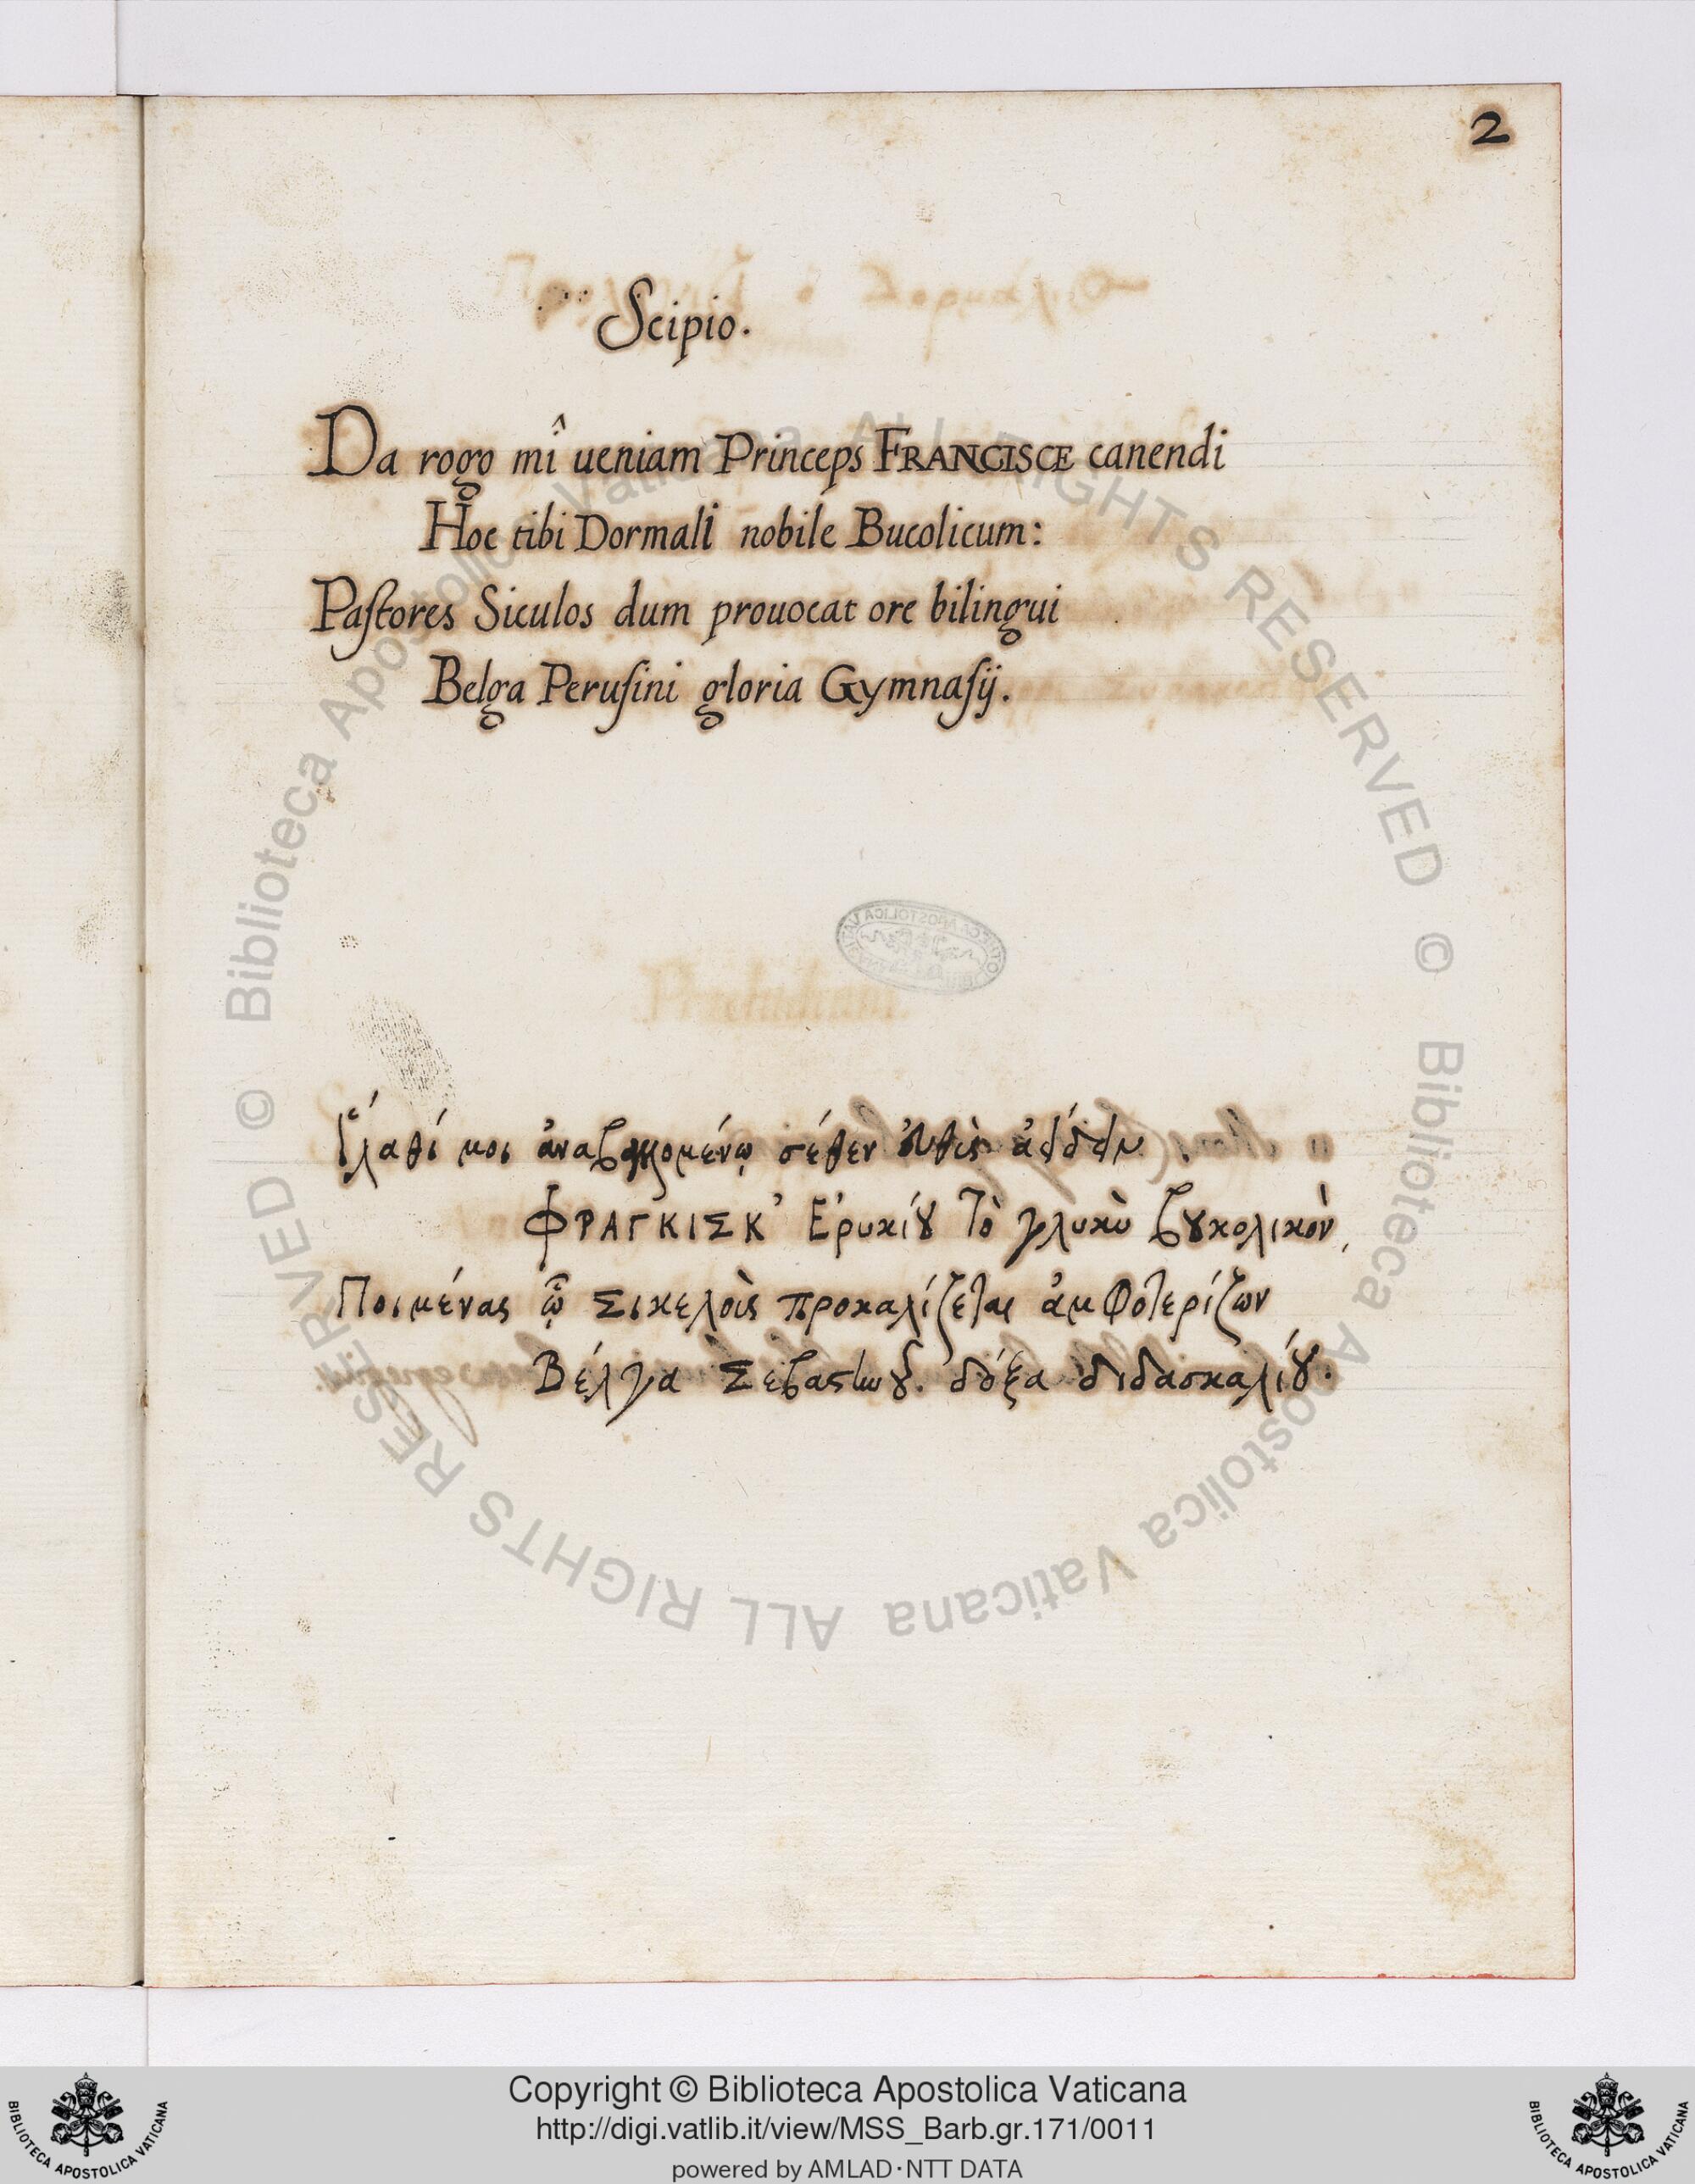 2
Scipio.
Da rogo mî ueniam Princeps FRANCISCE canendi
Hoc tibi Dormalî nobile Bucolicum:
Pastores Siculos dum prouocat ore bilingui
Belga Perusini gloria Gymnasij.
Ἵλαθί μοι ἀναβαλλομένῳ σέθεν αὖθις ἀείδειν
ΦΡΑΓΚΙΣΚ' Ἐρυκίου τὸ γλυκὺ βουκολικὸν,
Ποιμένας ᾧ Σικελοὺς προκαλίζεται ἀμφοτερίζων
Βέλγα Σεβαστῳοῦ δόξα διδασκαλίου.
Copyright © Biblioteca Apostolica Vaticana
http://digi.vatlib.it/view/MSS_Barb.gr.171/0011
powered by AMLAD·NTT DATA
BIBLIOTECA APOSTOLICA VATICANA
BIBLIOTECA APOSTOLICA VATICANA
© Biblioteca Apostolica Vaticana ALL RIGHTS RESERVED
© Biblioteca Apostolica Vaticana ALL RIGHTS RESERVED